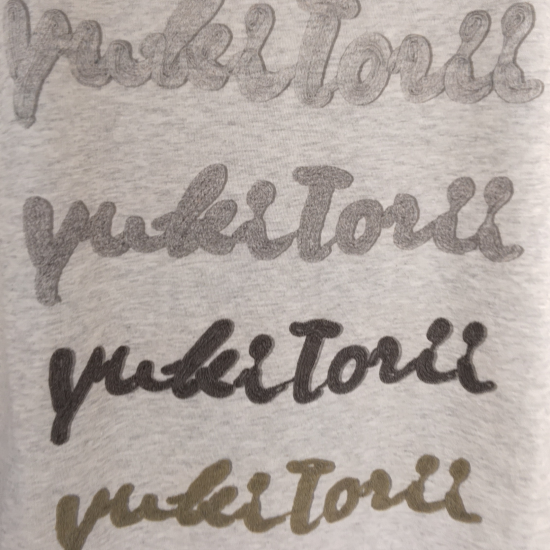 yukiTorii
yukiTorii
yukiTorii
yukiTorii